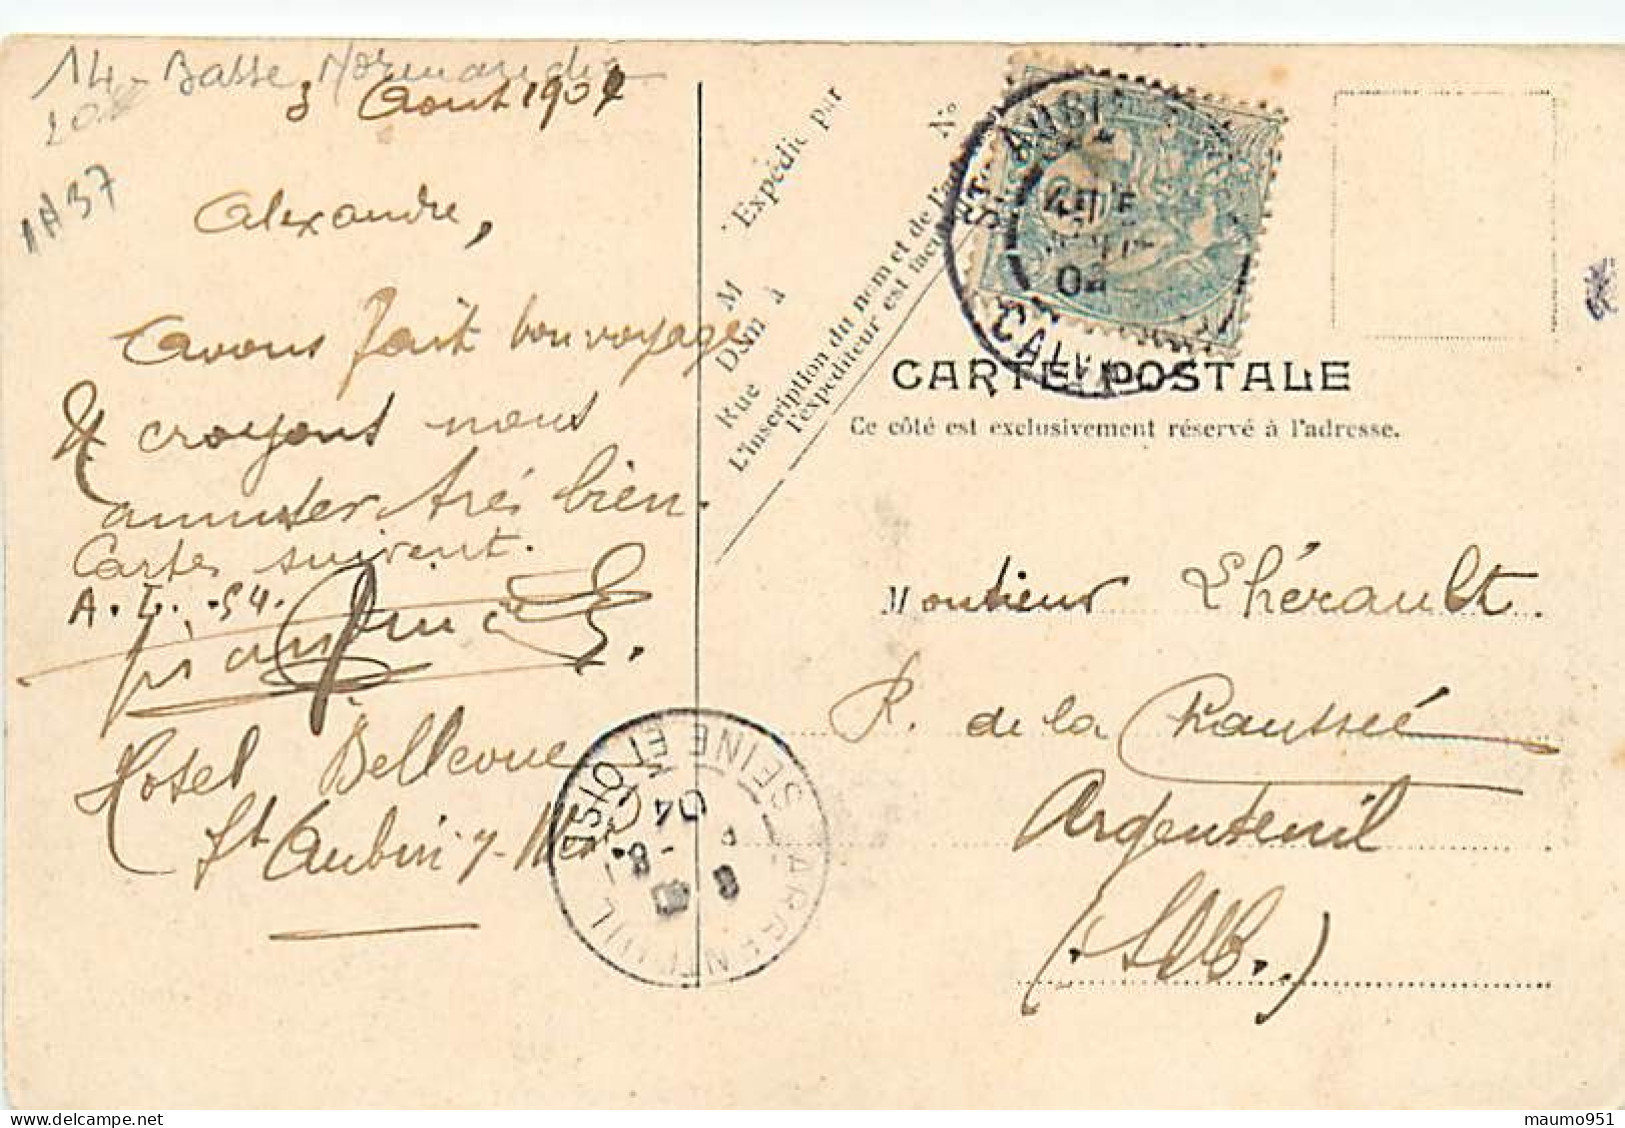 14 - Basse Normandie
3 Aout 1904
1A37
Alexandre,
Avons fait bon voyage
& croyons nous
amuser très bien.
Cartes suivent.
Hotel Bellevue
St Aubin s/ Mer
M
Expédié par
Dem à
Rue
N°
L'inscription du nom et de l'ad
l'expéditeur est facu
ST AUBIN
04
CALV
CARTE POSTALE
Ce côté est exclusivement réservé à l'adresse.
Monsieur Lhérault
R. de la Chaussée
Argenteuil
(S&O.)
ARGENTEUIL
SEINE ET OISE
8
-8
04
maumo951